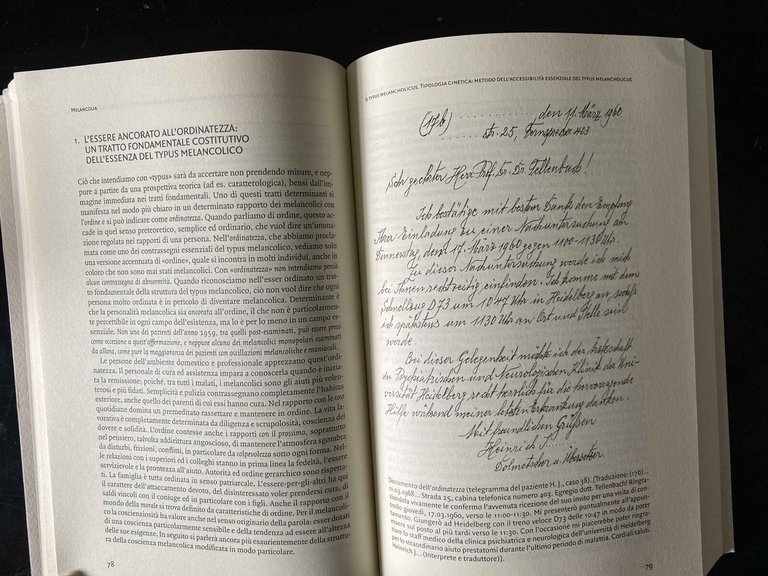 MELANCOLIA
1. L'ESSERE ANCORATO ALL'ORDINATEZZA:
UN TRATTO FONDAMENTALE COSTITUTIVO
DELL'ESSENZA DEL TYPUS MELANCOLICO
Ciò che intendiamo con «typus» sarà da accertare non prendendo misure, e nep-
pure a partire da una prospettiva teorica (ad es. caratterologica), bensì dall'im-
magine immediata nei tratti fondamentali. Uno di questi tratti determinanti si
manifesta nel modo più chiaro in un determinato rapporto dei melancolici con
l'ordine e si può indicare come ordinatezza. Quando parliamo di ordine, questo ac-
cade in quel senso preteoretico, semplice ed ordinario, che vuol dire un'intona-
zione regolata nei rapporti di una persona. Nell'ordinatezza, che abbiamo procla-
mata uno dei contrassegni essenziali del typus melancolico, vediamo solo
una versione accentuata di «ordine», quale si incontra in molti individui, anche in
coloro che non sono mai stati melancolici. Con «ordinatezza» non intendiamo perciò
alcun contrassegno di abnormità. Quando riconosciamo nell'esser ordinato un trat-
to fondamentale della struttura del typus melancolico, ciò non vuol dire che ogni
persona molto ordinata è in pericolo di diventare melancolica. Determinante è
che la personalità melancolica sia ancorata all'ordine, il che non è particolarmen-
te percettibile in ogni campo dell'esistenza, ma lo è per lo meno in un campo es-
senziale. Non uno dei pazienti dell'anno 1959, tra quelli post-esaminati, può essere preso
come eccezione a quest'affermazione, e neppure alcuno dei melancolici monopolari esaminati
da allora, come pure la maggioranza dei pazienti con oscillazioni melancoliche e maniacali.
Le persone dell'ambiente domestico e professionale apprezzano quest'ordi-
natezza. Il personale di cura ed assistenza impara a conoscerla quando è iniziata
la remissione; poiché, tra tutti i malati, i melancolici sono gli aiuti più volen-
terosi e più fidati. Semplicità e pulizia contrassegnano completamente l'habitus
esteriore, anche quello dei parenti di cui essi hanno cura. Nel rapporto con le cose
quotidiane domina un premeditato rassettare e mantenere in ordine. La vita la-
vorativa è completamente determinata da diligenza e scrupolosità, coscienza del
dovere e solidità. L'ordine contesse anche i rapporti con il prossimo, soprattutto
nel pensiero, talvolta addirittura angoscioso, di mantenere l'atmosfera sgombra
da disturbi, frizioni, conflitti, in particolare da colpevolezza sotto ogni forma. Nel-
le relazioni con i superiori ed i colleghi stanno in prima linea la fedeltà, l'essere
servizievole e la prontezza all'aiuto. Autorità ed ordine gerarchico sono rispetta-
ti. La famiglia è tutta ordinata in senso patriarcale. L'essere-per-gli-altri ha qui
il carattere dell'attaccamento devoto, del disinteressato voler prendersi cura, di
saldi vincoli con il coniuge ed in particolare con i figli. Anche il rapporto con il
mondo della morale si trova definito da caratteristiche di ordine. Per il melancoli-
co la coscienziosità ha valore anche nel senso originario della parola: esser dotati
di una coscienza particolarmente sensibile e della tendenza ad essere all'altezza
di questa. In seguito si avrà ancora più esaurientemente della struttu-
ra della coscienza melancolica modificata in modo particolare.
78
IL TYPUS MELANCHOLICUS. TIPOLOGIA CINETICA: METODO DELL'ACCESSIBILITÀ ESSENZIALE DEL TYPUS MELANCHOLICUS
(17b) ............, den 11. März 1960
........ str. 25, Fernsprecher 403
Sehr geehrter Herr Prof. Dr. Dr. Tellenbach!
Ich bestätige mit bestem Dank den Empfang
Ihrer Einladung zu einer Nachuntersuchung am
Donnerstag, dem 17. März 1960 gegen 1100-1130 Uhr.
Zu dieser Nachuntersuchung werde ich mich
bei Ihnen rechtzeitig einfinden. Ich komme mit dem
Schnellzug D 73 um 1047 Uhr in Heidelberg an, sodaß
ich spätestens um 1130 Uhr an Ort und Stelle sein
werde.
Bei dieser Gelegenheit möchte ich der Ärzteschaft
der Psychiatrischen und Neurologischen Klinik der Uni-
versität Heidelberg recht herzlich für die hervorragende
Hilfe während meiner letzten Erkrankung danken.
Mit freundlichen Grüßen
Heinrich J......
Dolmetscher u. Übersetzer
Documento dell'ordinatezza (telegramma del paziente H. J., caso 38). [Traduzione: (17b)...
11.03.1968... Strada 25, cabina telefonica numero 403. Egregio dott. Tellenbach! Ringrazian-
vivamente le confermo l'avvenuta ricezione del suo invito per una visita di con-
trollo giovedì, 17.03.1960, verso le 11:00-11:30. Mi presenterò puntualmente all'appun-
tamento. Giungerò ad Heidelberg con il treno veloce D73 alle 10:47 in modo da poter
essere sul posto al più tardi verso le 11:30. Con l'occasione mi piacerebbe poter ringra-
ziare lo staff medico della clinica psichiatrica e neurologica dell'università di Heidelberg
per lo straordinario aiuto prestatomi durante l'ultimo periodo di malattia. Cordiali saluti,
Heinrich J... (Interprete e traduttore)].
79